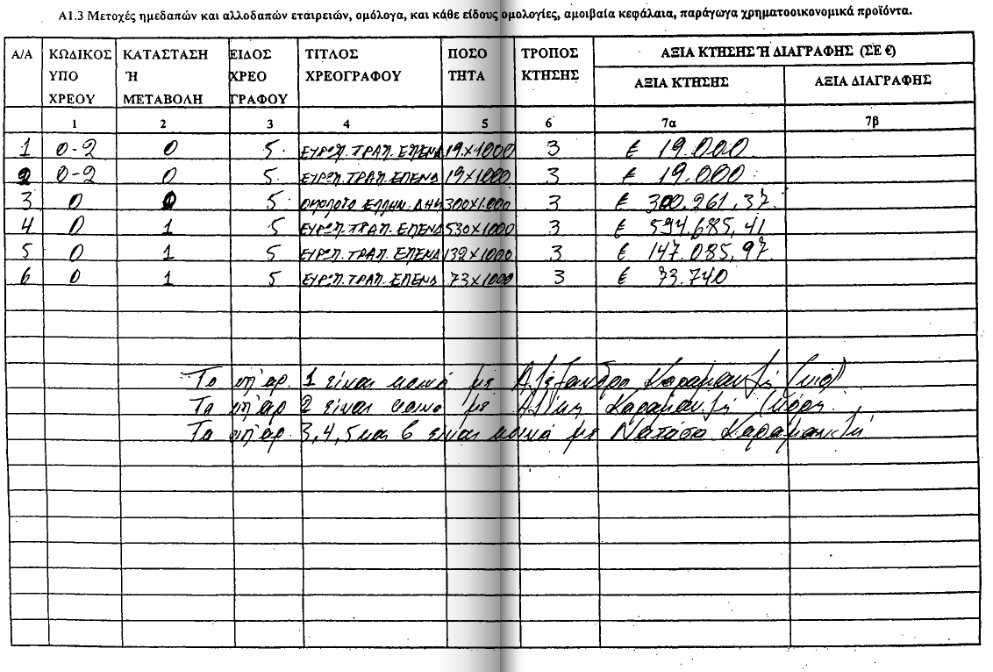 Α1.3 Μετοχές ημεδαπών και αλλοδαπών εταιρειών, ομόλογα, και κάθε είδους ομολογίες, αμοιβαία κεφάλαια, παράγωγα χρηματοοικονομικά προϊόντα.
Α/Α ΚΩΔΙΚΟΣ ΥΠΟ ΧΡΕΟΥ ΚΑΤΑΣΤΑΣΗ Ή ΜΕΤΑΒΟΛΗ ΕΙΔΟΣ ΧΡΕΟ ΓΡΑΦΟΥ ΤΙΤΛΟΣ ΧΡΕΟΓΡΑΦΟΥ ΠΟΣΟ ΤΗΤΑ ΤΡΟΠΟΣ ΚΤΗΣΗΣ ΑΞΙΑ ΚΤΗΣΗΣ Ή ΔΙΑΓΡΑΦΗΣ (ΣΕ €)
ΑΞΙΑ ΚΤΗΣΗΣ ΑΞΙΑ ΔΙΑΓΡΑΦΗΣ
1 2 3 4 5 6 7α 7β
1 0-2 0 5 ΕΥΡΩΠ. ΤΡΑΠ. ΕΠΕΝΔ 19x1000 3 € 19.000
2 0-2 0 5 ΕΥΡΩΠ. ΤΡΑΠ. ΕΠΕΝΔ 19x1000 3 € 19.000
3 0 0 5 ΟΜΟΛΟΓΟ ΕΛΛΗΝ. ΔΗΜ 300x1000 3 € 300.261,37
4 0 1 5 ΕΥΡΩΠ. ΤΡΑΠ. ΕΠΕΝΔ 530x1000 3 € 594.685,41
5 0 1 5 ΕΥΡΩΠ. ΤΡΑΠ. ΕΠΕΝΔ 132x1000 3 € 147.085,97
6 0 1 5 ΕΥΡΩΠ. ΤΡΑΠ. ΕΠΕΝΔ 73x1000 3 € 73.740
Το υπ' αρ. 1 είναι κοινό με Αλέξανδρο Καραμανλή (υιό)
Το υπ' αρ 2 είναι κοινό με Αλίκη Καραμανλή (κόρη
Τα υπ' αρ. 3,4,5 και 6 είναι κοινά με Νατάσα Καραμανλή